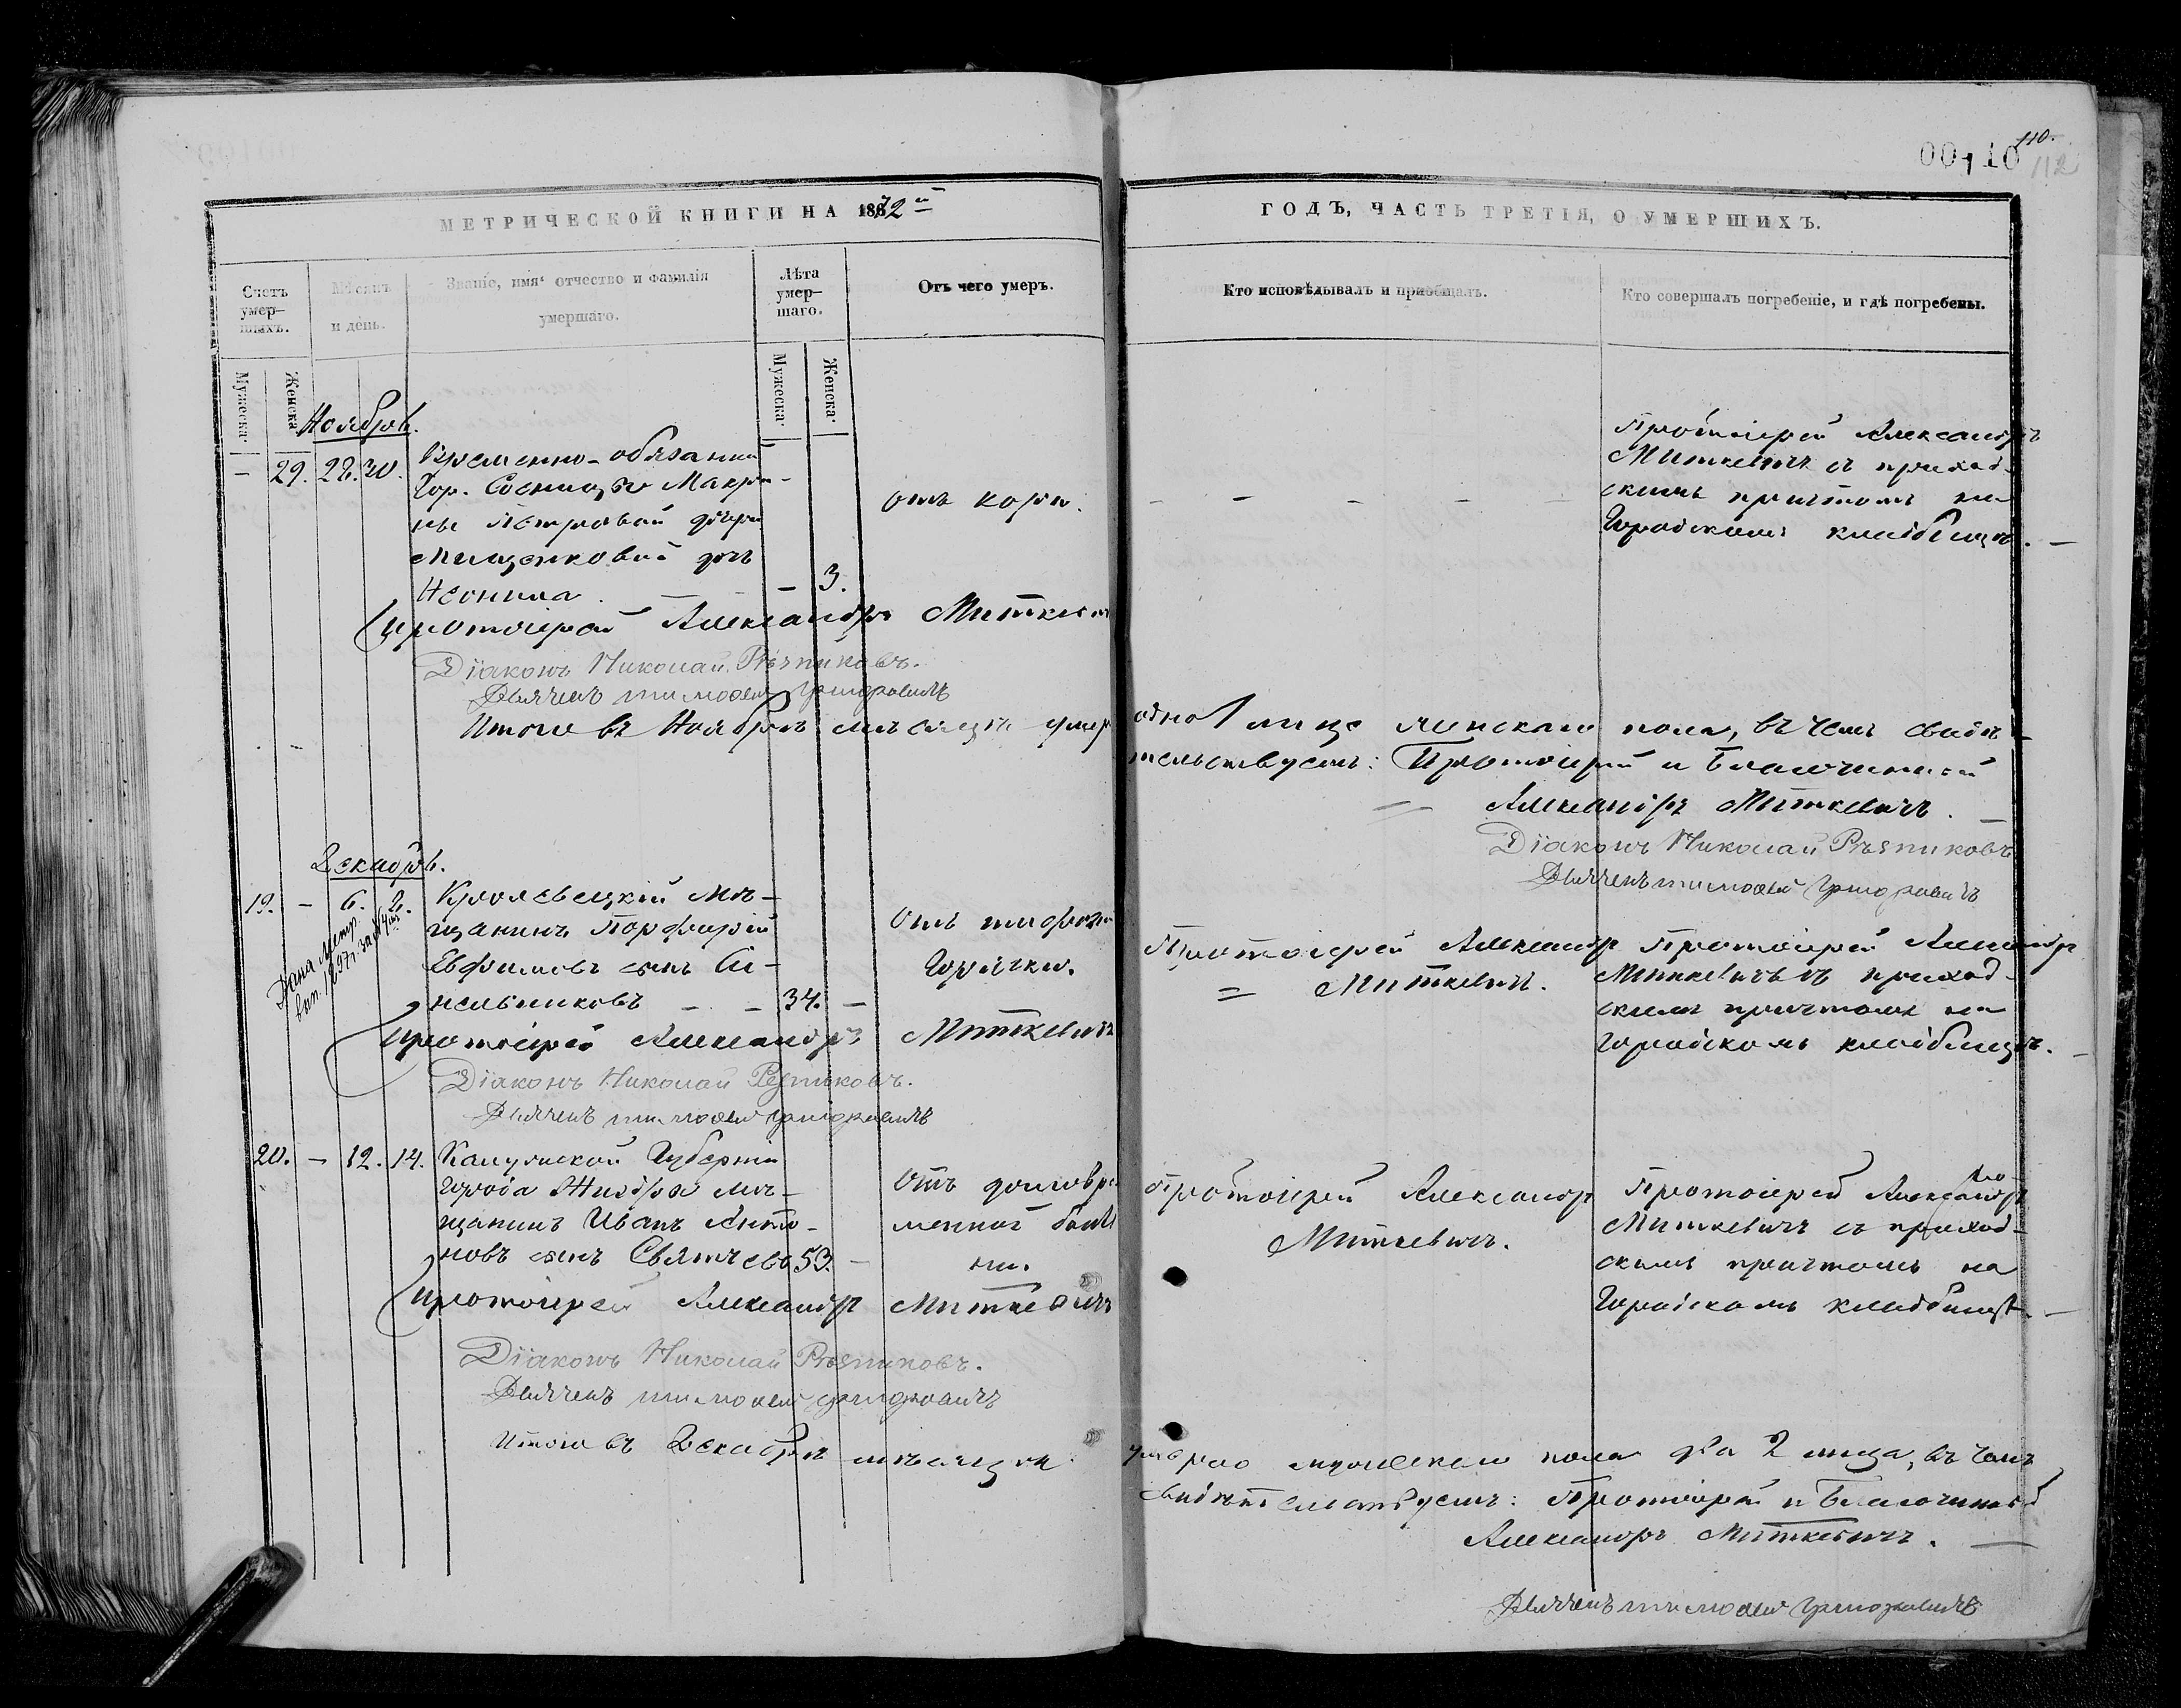 00110
110.
112
МЕТРИЧЕСКОЙ КНИГИ НА 1872й
ГОДЪ, ЧАСТЬ ТРЕТІЯ, О УМЕРШИХЪ.
Счетъ умер-
шихъ.
Мѣсяцъ
и день.
Званіе, имя, отчество и фамилія
умершаго.
Лѣта
умер-
шаго.
Отъ чего умеръ.
Кто исповѣдывалъ и пріобщалъ.
Кто совершалъ погребеніе, и гдѣ погребены.
Мужеска.
Женска.
Мужеска.
Женска.
Ноябрь.
– 29. 28. 30.
Временно-обязанн
Гор. Сосницы Макри-
ны Петровой
Мищенковой дочь
Неонила. – 3.
отъ кори.
Протоіерей Александръ
Миткевичъ съ приход-
скимъ причтомъ на
Городскомъ кладбищѣ. –
Протоіерей Александръ Миткевичъ
Діаконъ Николай Рѣзниковъ.
Дьячекъ Тимоѳей Григоровичъ
Итого въ Ноябрѣ мѣсяцѣ умер
одно 1 лице женскаго пола, въ чемъ свидѣ-
тельствуетъ: Протоіерей и Благочинный
Александръ Миткевичъ.
Діаконъ Николай Рѣзниковъ
Дьячекъ Тимоѳей Григоровичъ
Декабрь.
19. – 6. 2.
Дана Метр.
вып. 1897 г. за №
Кролевецкій Мѣ-
щанинъ Порфирій
Евфимовъ сынъ Си-
нельниковъ – – 34. –
Отъ тифозн
Горячки.
Протоіерей Александръ
Миткевичъ.
Протоіерей Александръ
Миткевичъ съ приход-
скимъ причтомъ на
Городскомъ кладбищѣ. –
Протоіерей Александръ Миткевичъ
Діаконъ Николай Резниковъ.
Дьячекъ Тимоѳей Григоровичъ
20. – 12. 14.
Калужской Губерніи
Города Жиздры мѣ-
щанинъ Иванъ Анто-
новъ сынъ 53. –
Отъ долговре
менной болѣ
зни.
Протоіерей Александръ
Миткевичъ.
Протоіерей Александръ
Миткевичъ съ приход-
скимъ причтомъ на
Городскомъ кладбищѣ. –
Протоіерей Александръ Миткевичъ
Діаконъ Николай Рѣзниковъ.
Дьячекъ Тимоѳей Григоровичъ
Итого въ Декабрѣ мѣсяцѣ
умерло мужескаго пола два 2 лица, въ чемъ
свидѣтельствуетъ: Протоіерей и Благочинный
Александръ Миткевичъ.
Дьячекъ Тимоѳей Григоровичъ